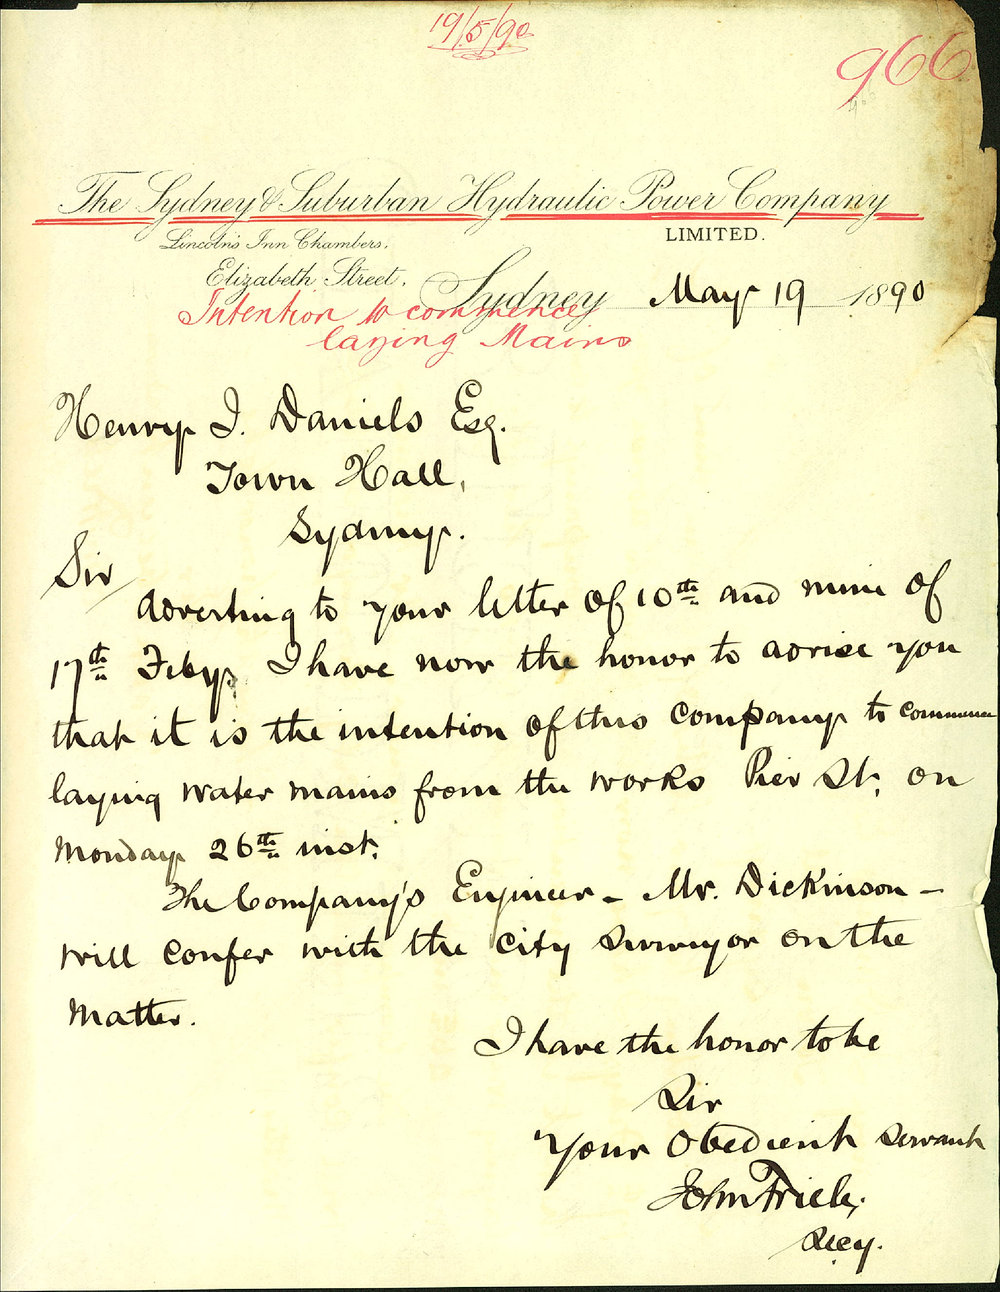 19/5/90
966
966
The Sydney & Suburban Hydraulic Power Company
LIMITED.
Lincoln's Inn Chambers,
Elizabeth Street,
Sydney May 19 1890
Intention to commence
laying Mains
Henry J. Daniels Esq.
Town Hall,
Sydney.
Sir
Adverting to your letter of 10th and mine of
17th Feby, I have now the honor to advise you
that it is the intention of this Company to commence
laying water mains from the works Pier St, on
Monday 26th inst.
The Company's Engineer - Mr. Dickinson -
will confer with the city surveyor on the
matter.
I have the honor to be
Sir
Your Obedient Servant
John
Secy.